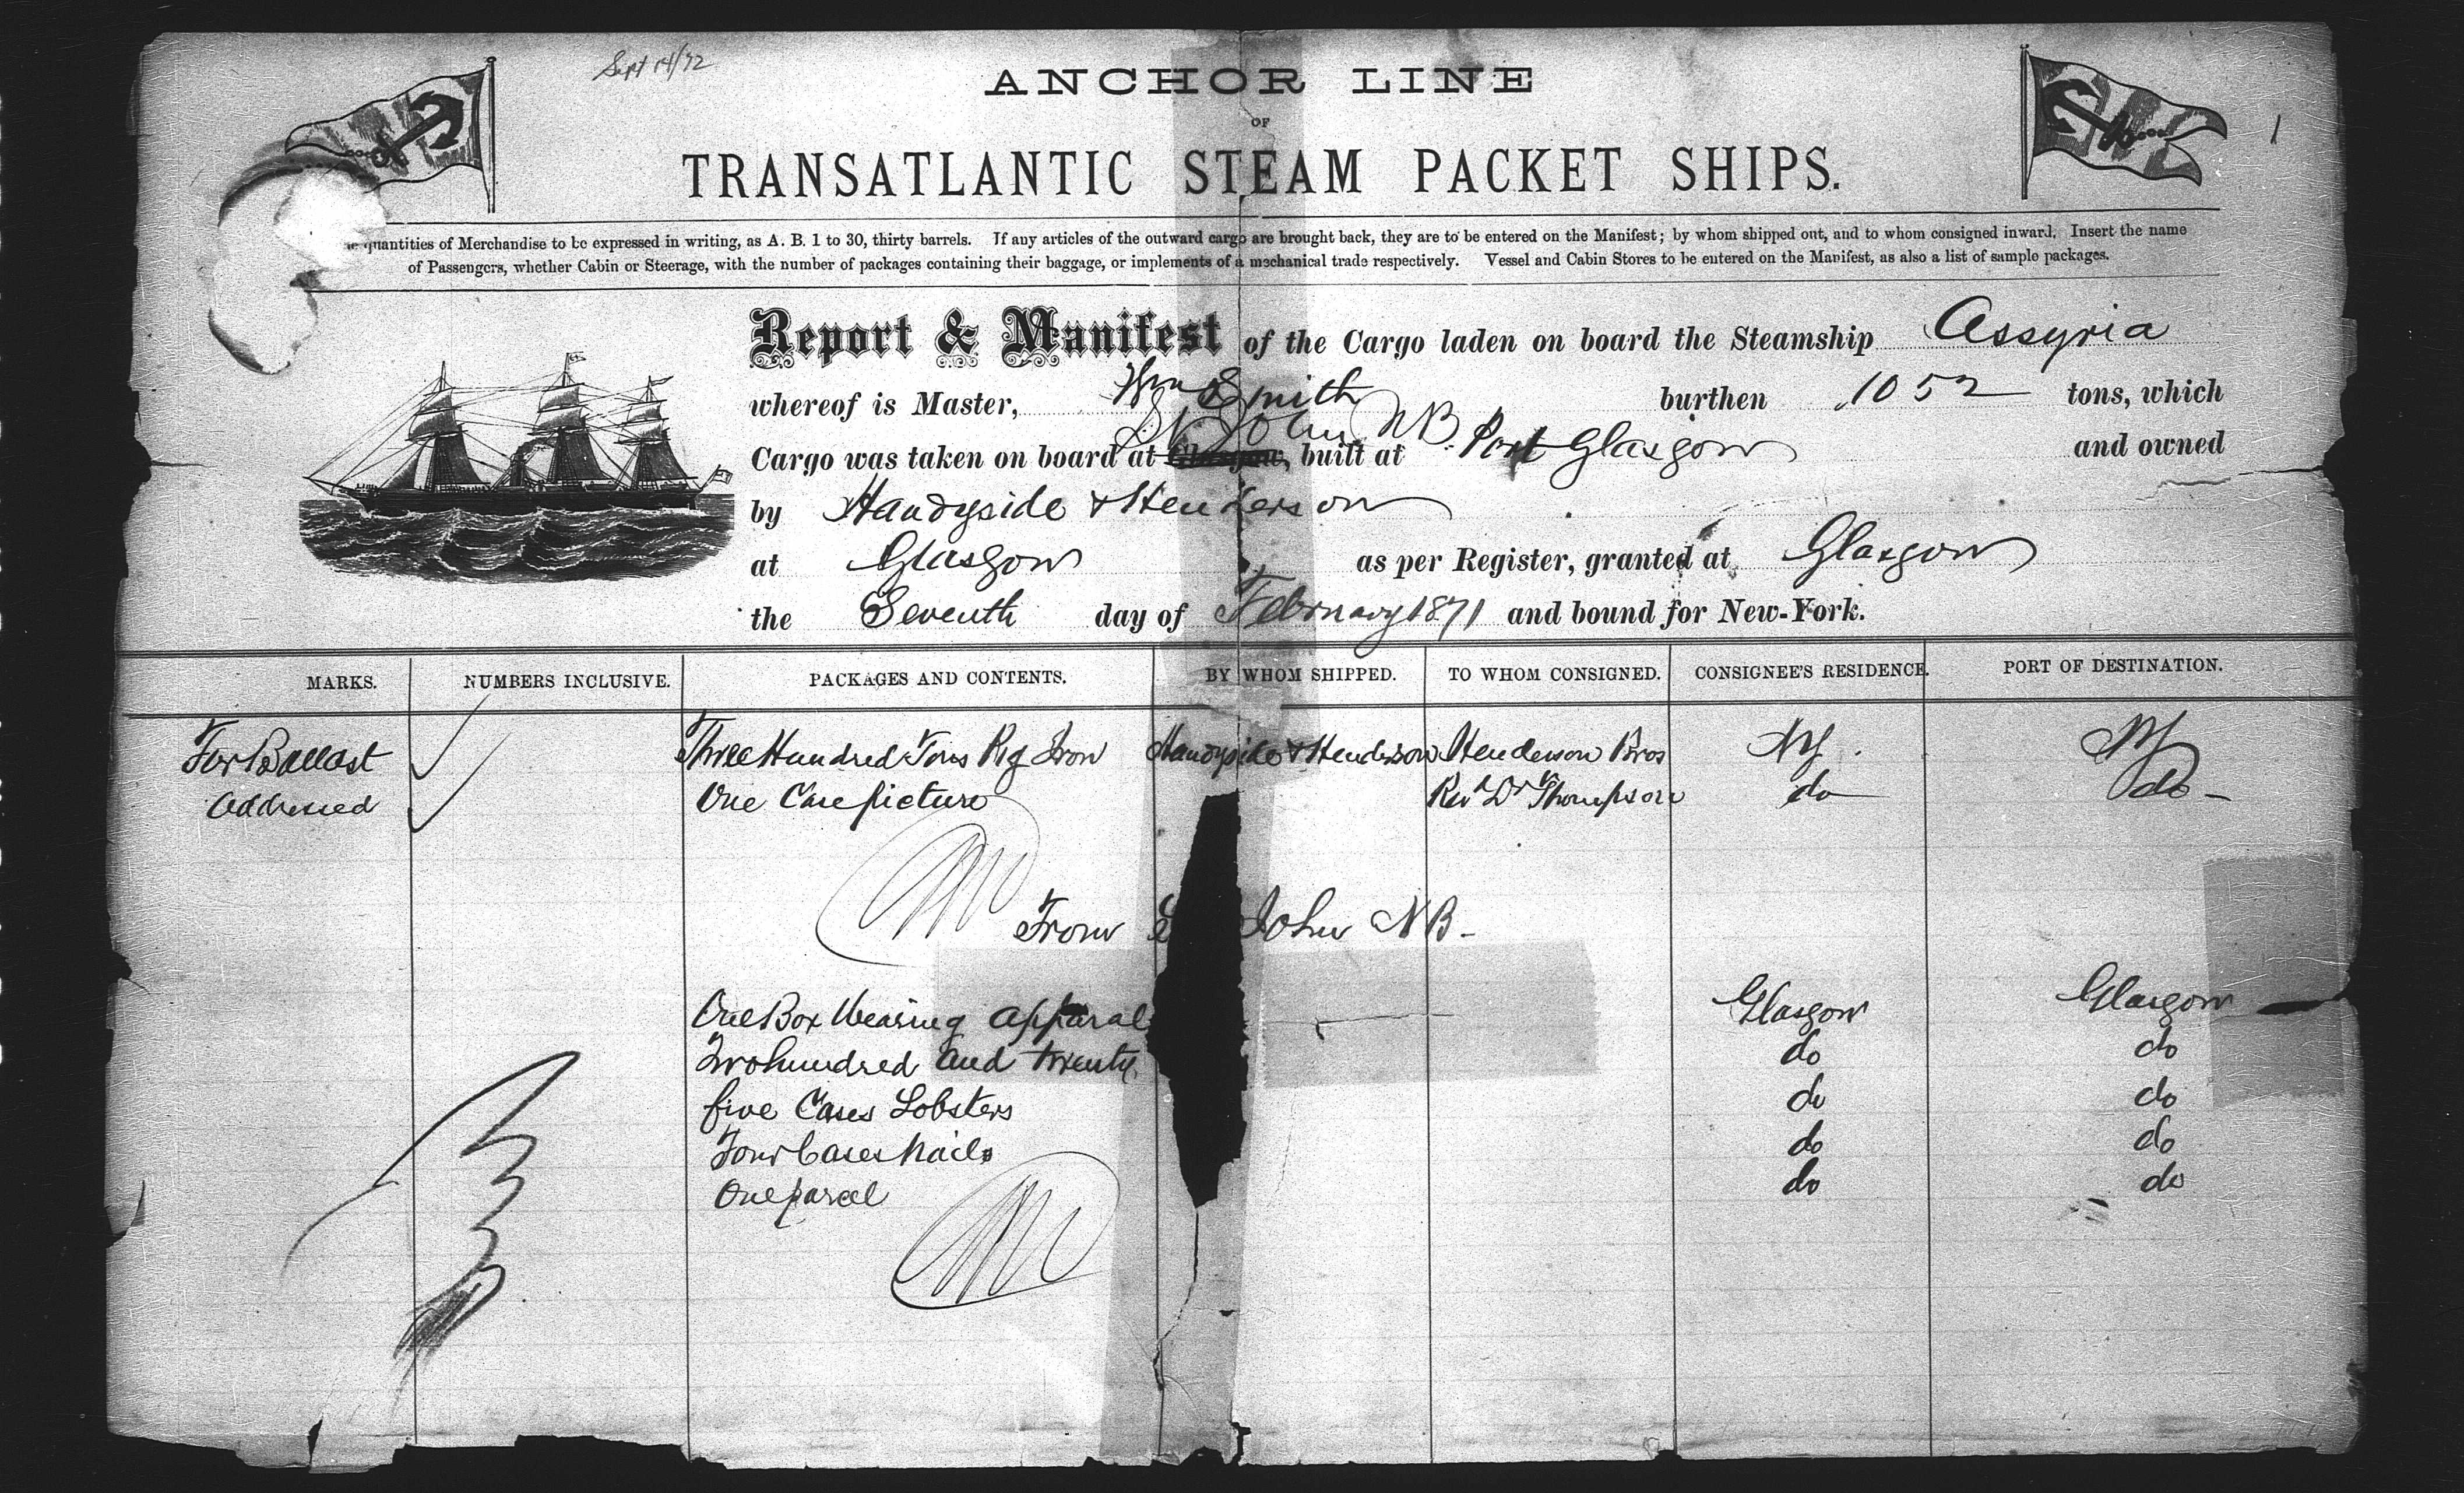 Sept 14/72
ANCHOR LINE
OF
TRANSATLANTIC STEAM PACKET SHIPS.
1
quantities of Merchandise to be expressed in writing, as A. B. 1 to 30, thirty barrels. If any articles of the outward cargo are brought back, they are to be entered on the Manifest; by whom shipped out, and to whom consigned inward. Insert the name
of Passengers, whether Cabin or Steerage, with the number of packages containing their baggage, or implements of a mechanical trade respectively. Vessel and Cabin Stores to be entered on the Manifest, as also a list of sample packages.
Report & Manifest of the Cargo laden on board the Steamship Assyria
whereof is Master, Wm Smith burthen 1052 tons, which
St John NB
Cargo was taken on board at Glasgow, built at Port Glasgow and owned
by Handyside & Henderson
at Glasgow as per Register, granted at Glasgow
the Seventh day of February 1871 and bound for New-York.
MARKS. NUMBERS INCLUSIVE. PACKAGES AND CONTENTS. BY WHOM SHIPPED. TO WHOM CONSIGNED. CONSIGNEE'S RESIDENCE. PORT OF DESTINATION.
For Ballast Three Hundred Tons Pig Iron Handyside & Henderson Henderson Bros NY. NY
Addressed One Case picture Revd Dr Thompson do do
From John NB
One Box Wearing Apparal Glasgow Glasgow
Two hundred and twenty do do
five Cases Lobsters do do
Four Cases Nails do do
One parcel do do